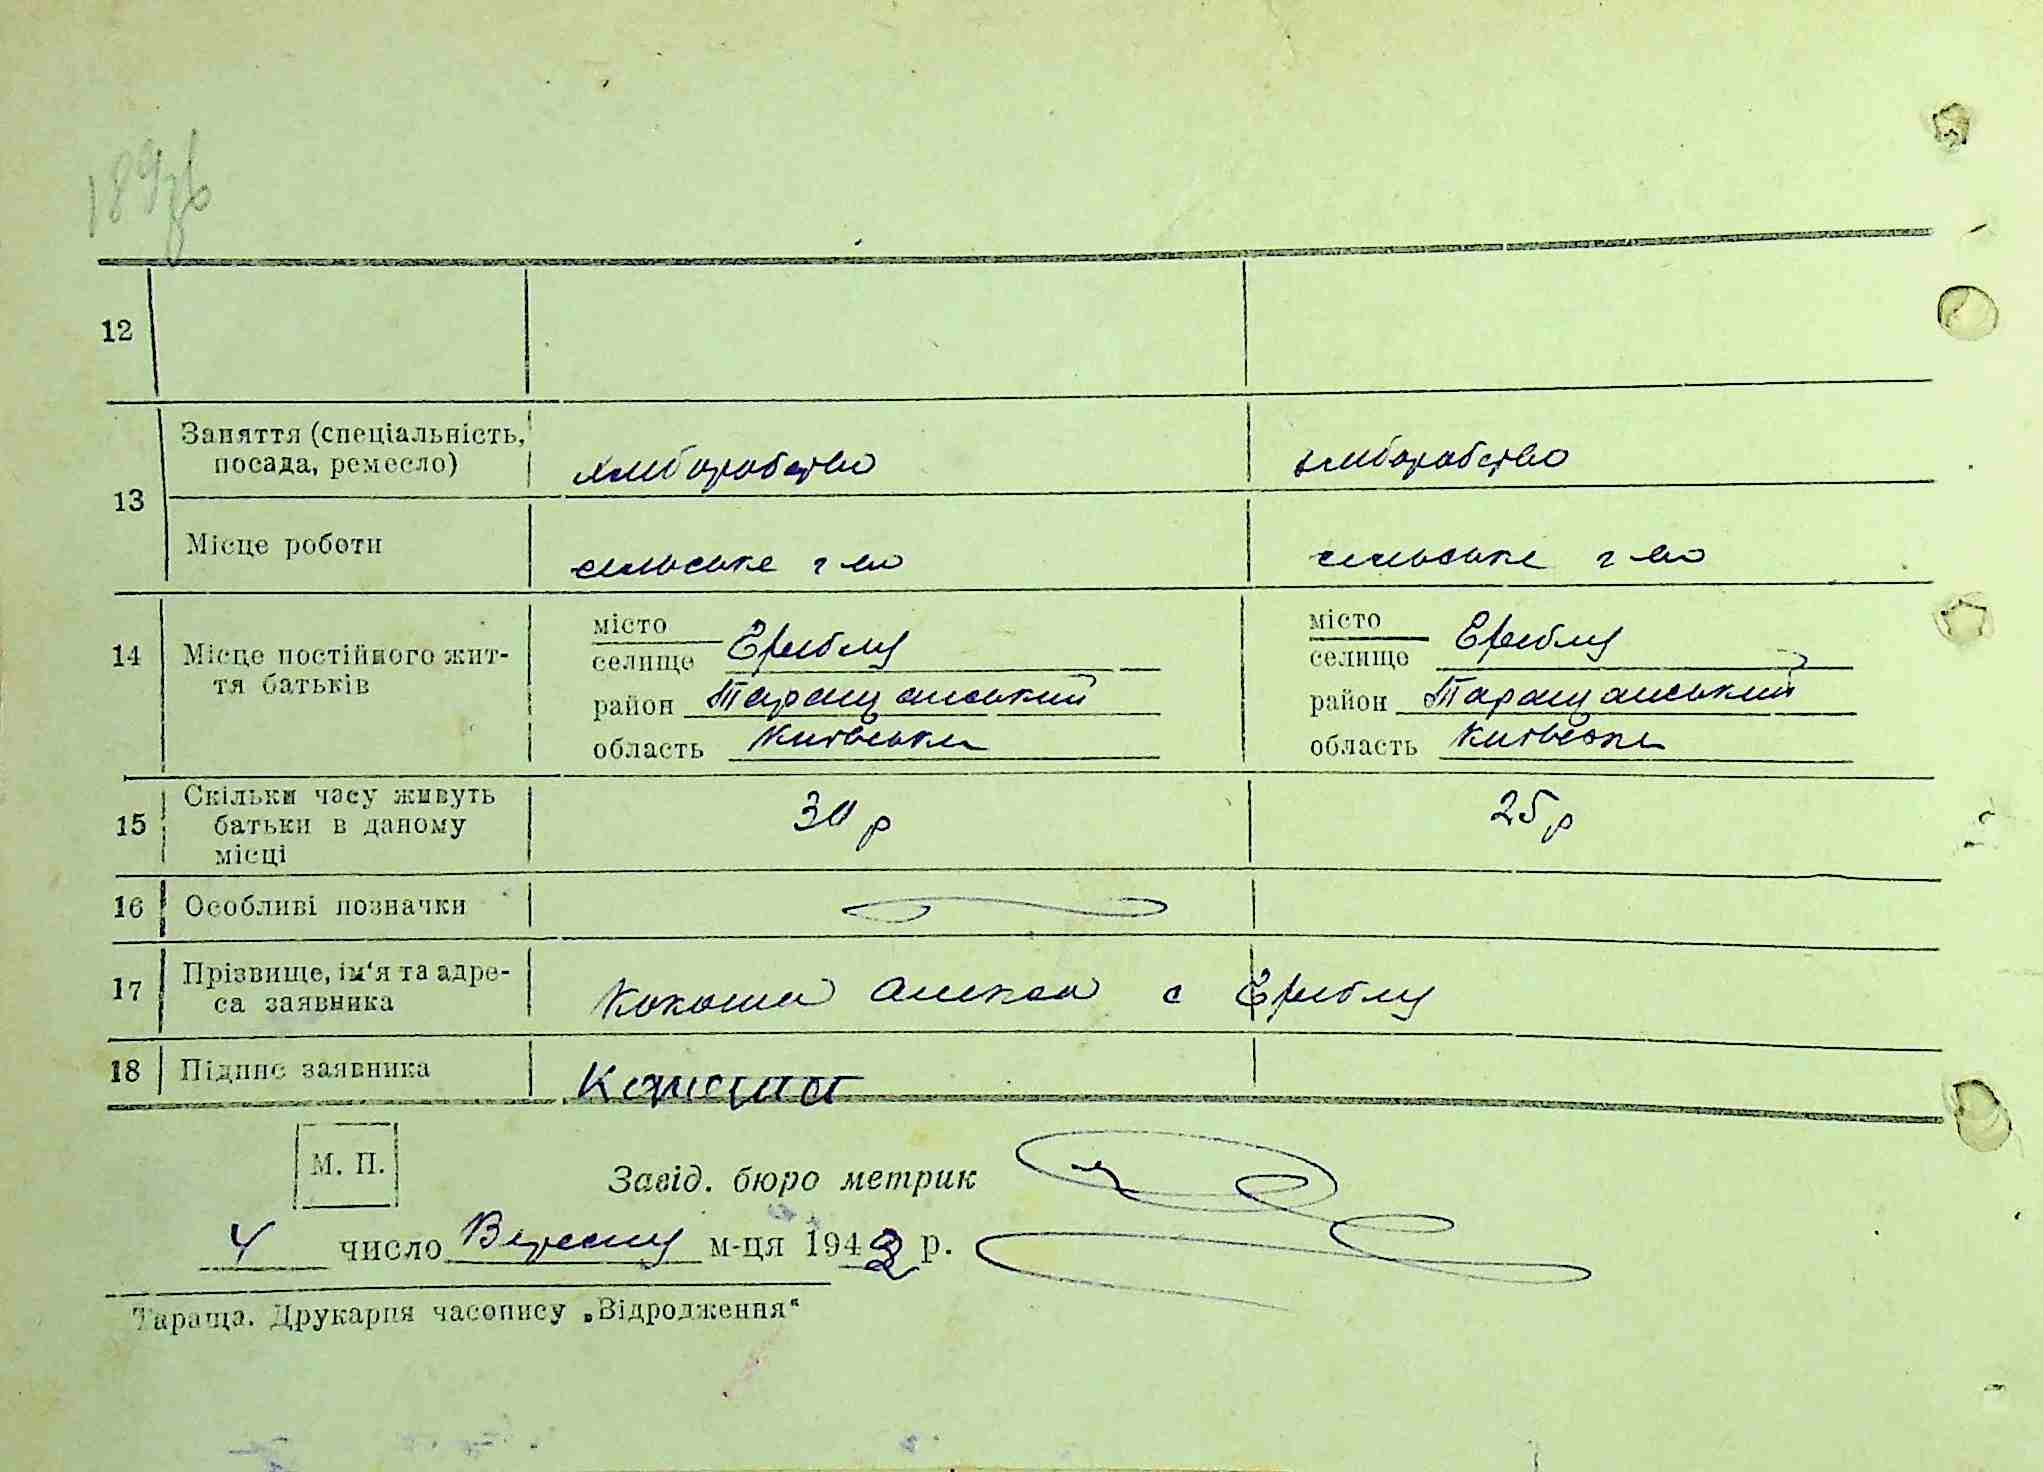 189зв
12
Заняття (спеціальність, посада, ремесло)
хліборобство
хліборобство
13
Місце роботи
сельське г-во
сельське г-во
14
Місце постійного жит-
тя батьків
місто
селище
район Таращанський
область Київська
місто
селище
район Таращанський
область Київська
15
Скільки часу живуть
батьки в даному
місці
30 р
25 р
16
Особливі позначки
17
Прізвище, ім'я та адре-
са заявника
Кокоша с
18
Підпис заявника
М. П.
Завід. бюро метрик
4 число Вересня м-ця 1942 р.
Тараща. Друкарня часопису „Відродження"